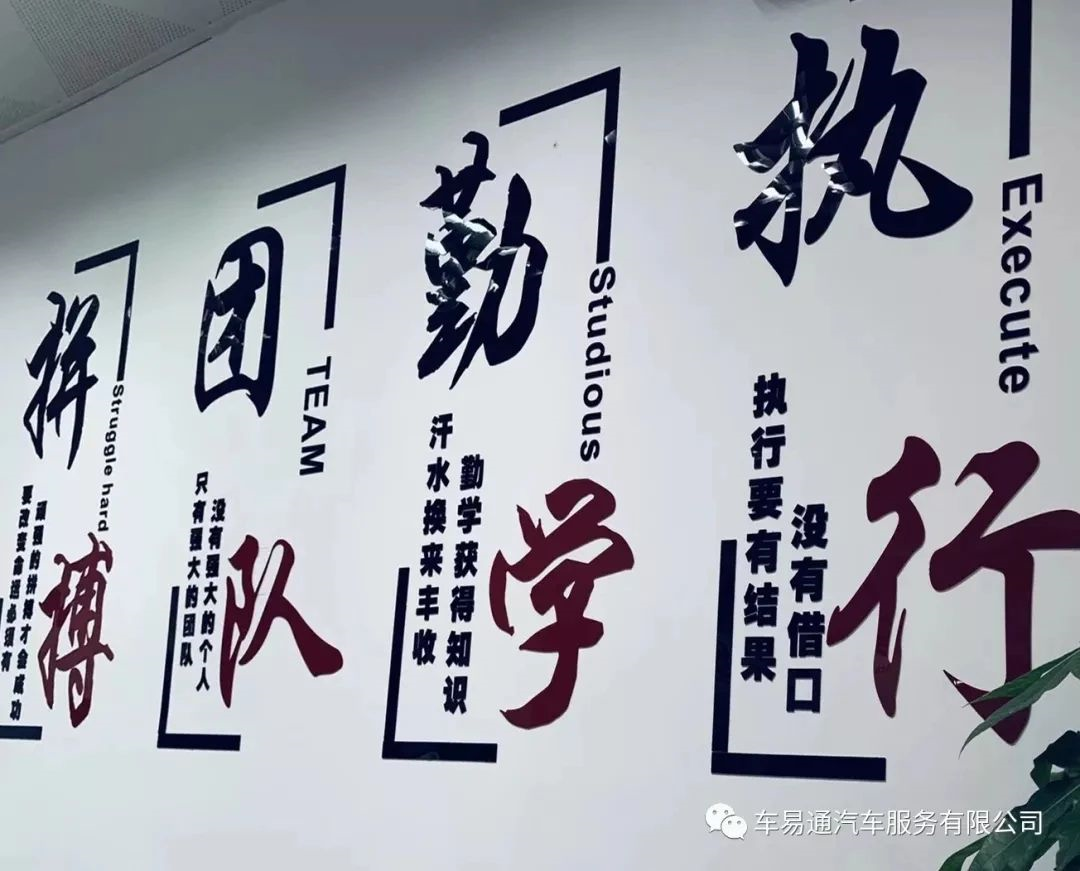 拼搏
Struggle hard
要改变命运必须有
顽强的拼搏才会成功
团队
TEAM
只有强大的团队
没有强大的个人
勤学
Studious
汗水换来丰收
勤学获得知识
执行
Execute
执行要有结果
没有借口
车易通汽车服务有限公司